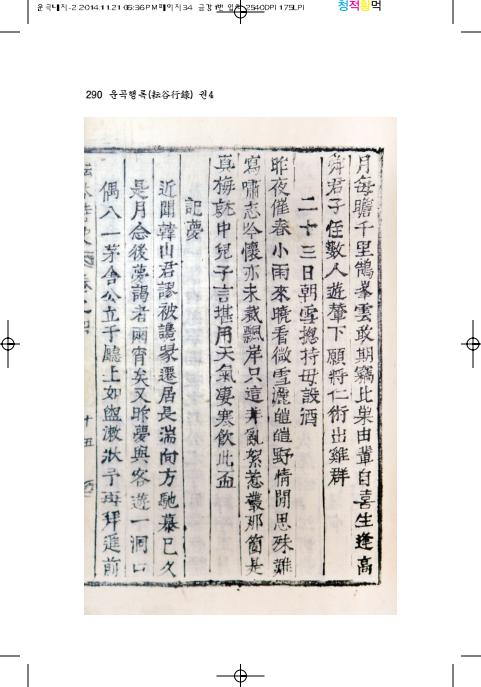 운곡내지-2 2014.11.21 05:36 PM 페이지34
청적황먹
290 운곡행록(耘谷行錄) 권4
月每瞻千里鵠峯雲敢期竊比巢由輩自喜生逢高
舜君子侄數人遊輦下願將仁術出雞群
二十三日朝雪摠持母設酒
昨夜催春小雨來曉看微雪灑皚皚野情閒思殊難
寫嘯志吟懷亦未裁飄岸只這弄亂絮惹叢那箇是
眞梅就中兒子言堪用天氣凄寒飮此盃
記夢
近聞韓山君謬被讒家遷居長湍向方馳慕已久
是月念後夢謁者兩宵矣又昨夢與客遊一洞口
偶入一茅舍公立于廳上如盥漱狀予再拜進前
十五